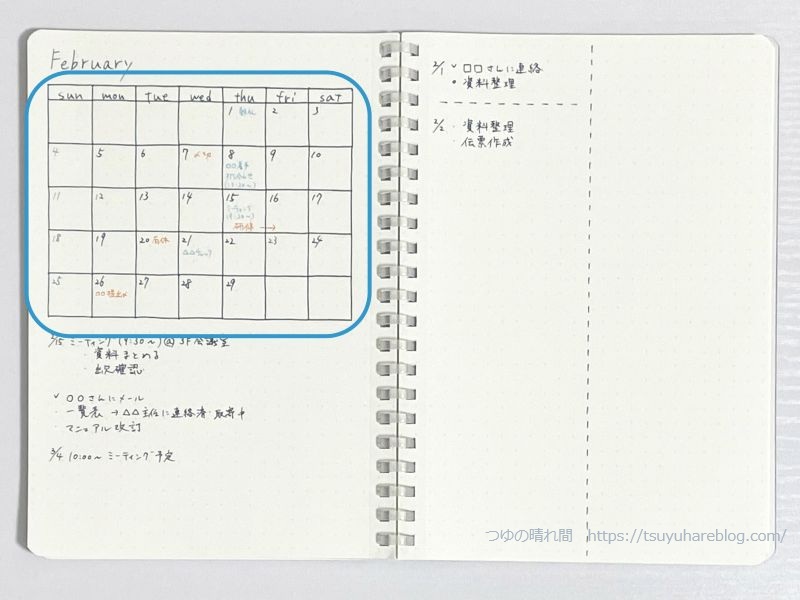 February
sun mon tue wed thu fri sat
1 2 3
4 5 6 7 〆切 8 9 10
打合せ
(13:30〜)
11 12 13 14 15 16 17
ミーティング
(9:30〜)
研修 →
18 19 20 有休 21 22 23 24
△△チェック
25 26 27 28 29
○○提出〆
2/15 ミーティング (9:30〜) @ 3F会議室
・資料まとめる
・出欠確認
✓ ○○さんにメール
・一覧表 → △△主任に連絡済・取寄中
・マニュアル改訂
3/4 10:00〜 ミーティング予定
2/1 ✓ □□さんに連絡
• 資料整理
2/2 ・資料整理
・伝票作成
つゆの晴れ間 https://tsuyuhareblog.com/